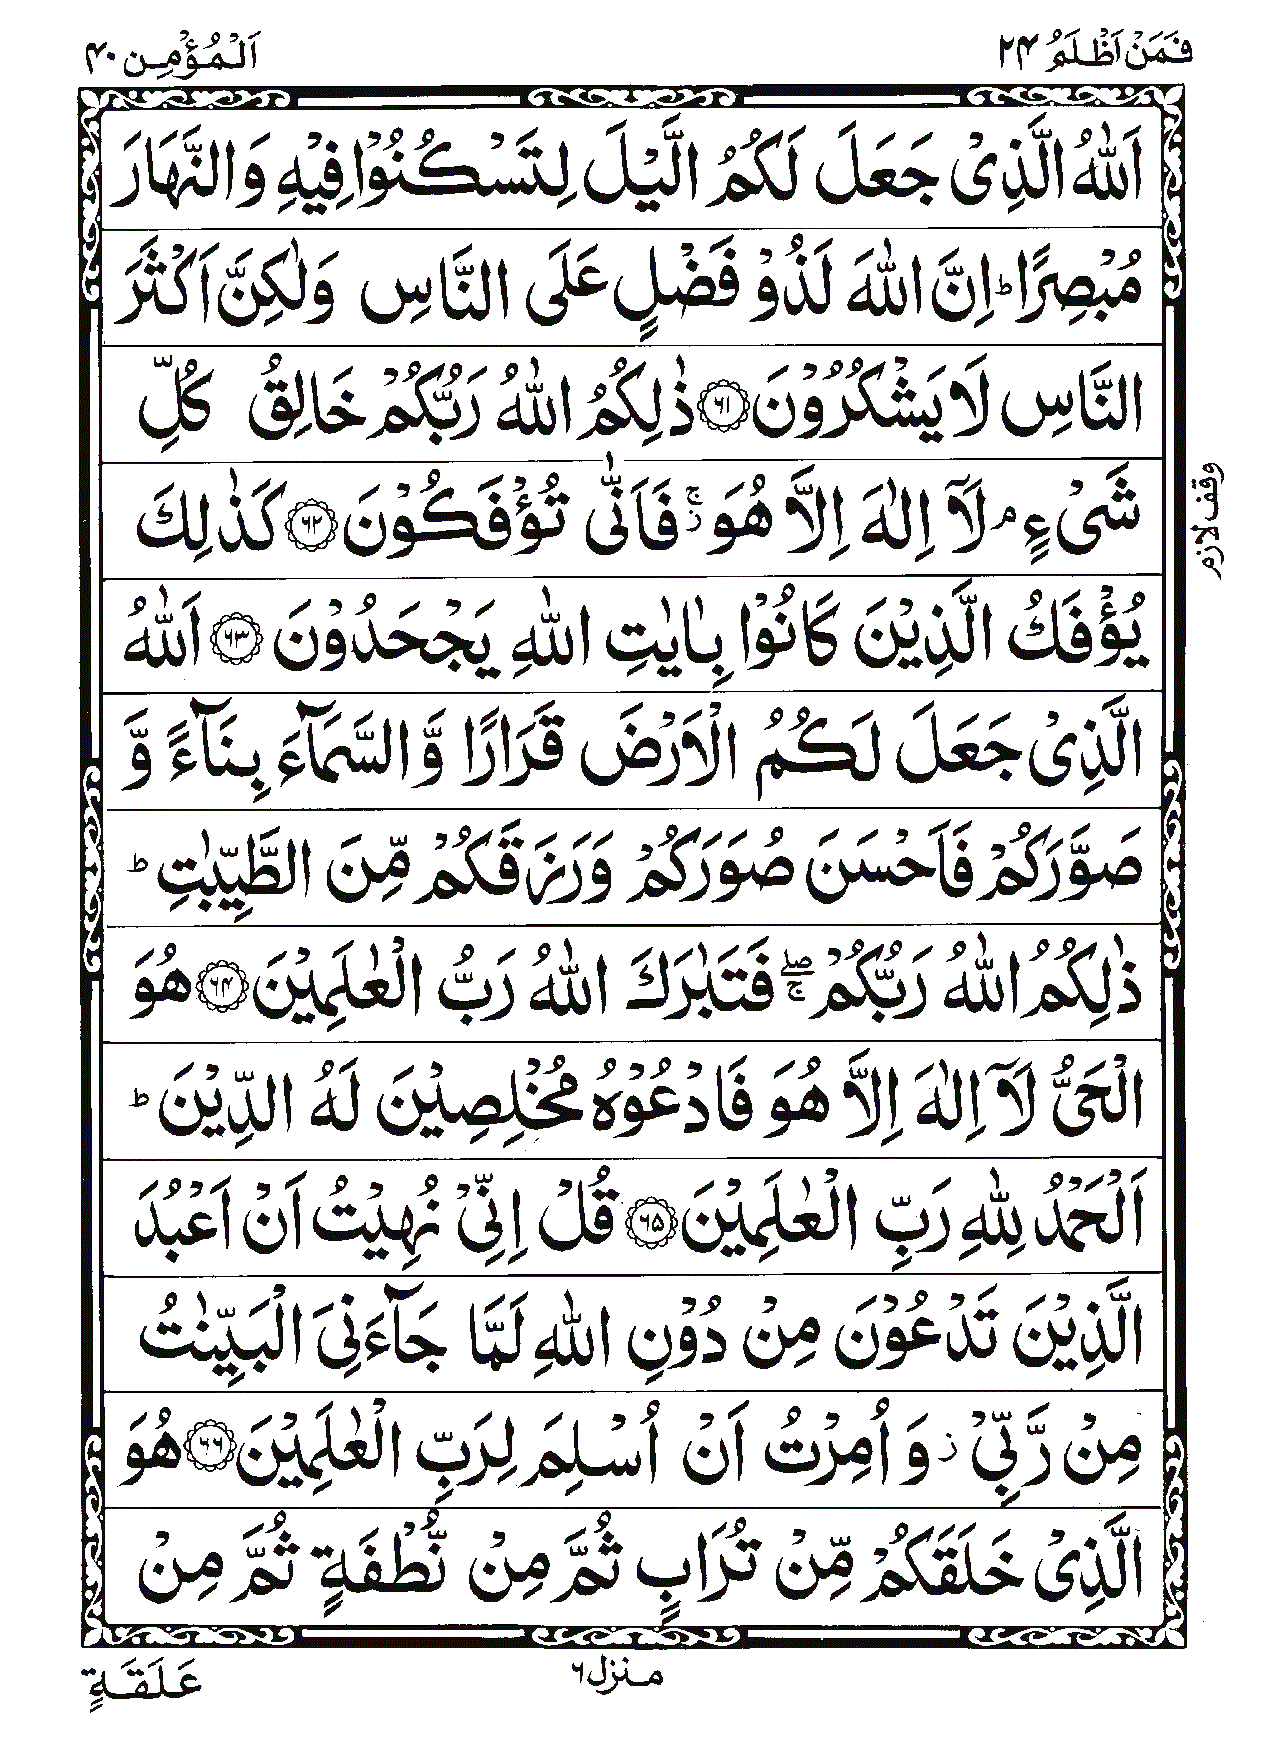 فَمَنْ اَظْلَمُ ۲۴
اَلْمُؤْمِن ۴۰
اَللّٰهُ الَّذِیْ جَعَلَ لَكُمُ الَّیْلَ لِتَسْكُنُوْا فِیْهِ وَ النَّهَارَ
مُبْصِرًاؕ اِنَّ اللّٰهَ لَذُوْ فَضْلٍ عَلَی النَّاسِ وَ لٰكِنَّ اَكْثَرَ
النَّاسِ لَا یَشْكُرُوْنَ ﴿۶۱﴾ ذٰلِكُمُ اللّٰهُ رَبُّكُمْ خَالِقُ كُلِّ
شَیْءٍۘ لَاۤ اِلٰهَ اِلَّا هُوَۚؗ فَاَنّٰی تُؤْفَكُوْنَ ﴿۶۲﴾ كَذٰلِكَ
وقف لازم
یُؤْفَكُ الَّذِیْنَ كَانُوْا بِاٰیٰتِ اللّٰهِ یَجْحَدُوْنَ ﴿۶۳﴾ اَللّٰهُ
الَّذِیْ جَعَلَ لَكُمُ الْاَرْضَ قَرَارًا وَّ السَّمَآءَ بِنَآءً وَّ
صَوَّرَكُمْ فَاَحْسَنَ صُوَرَكُمْ وَ رَزَقَكُمْ مِّنَ الطَّیِّبٰتِؕ
ذٰلِكُمُ اللّٰهُ رَبُّكُمْۖۚ فَتَبٰرَكَ اللّٰهُ رَبُّ الْعٰلَمِیْنَ ﴿۶۴﴾ هُوَ
الْحَیُّ لَاۤ اِلٰهَ اِلَّا هُوَ فَادْعُوْهُ مُخْلِصِیْنَ لَهُ الدِّیْنَؕ
اَلْحَمْدُ لِلّٰهِ رَبِّ الْعٰلَمِیْنَ ﴿۶۵﴾ قُلْ اِنِّیْ نُهِیْتُ اَنْ اَعْبُدَ
الَّذِیْنَ تَدْعُوْنَ مِنْ دُوْنِ اللّٰهِ لَمَّا جَآءَنِیَ الْبَیِّنٰتُ
مِنْ رَّبِّیْؗ وَ اُمِرْتُ اَنْ اُسْلِمَ لِرَبِّ الْعٰلَمِیْنَ ﴿۶۶﴾ هُوَ
الَّذِیْ خَلَقَكُمْ مِّنْ تُرَابٍ ثُمَّ مِنْ نُّطْفَةٍ ثُمَّ مِنْ
منزل ۶
عَلَقَةٍ